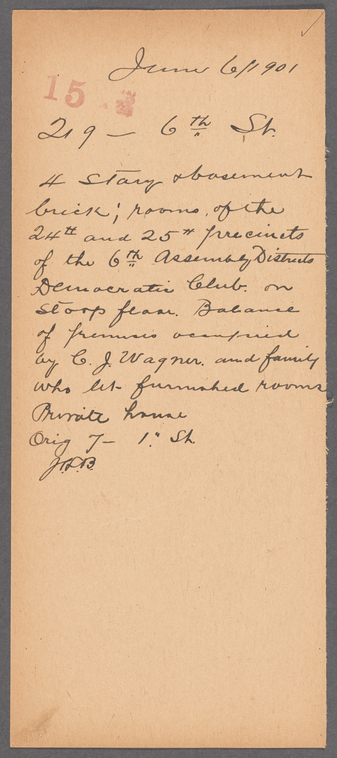 June 6/1901
15
219 – 6th St.
4 Story & basement
brick; rooms of the
24th and 25th precincts
of the 6th Assembly Districts
Democratic Club. on
Stoop floor. Balance
of premises occupied
by C. J. Wagner. and family
who let furnished rooms
Private house
Orig 7 – 1" St.